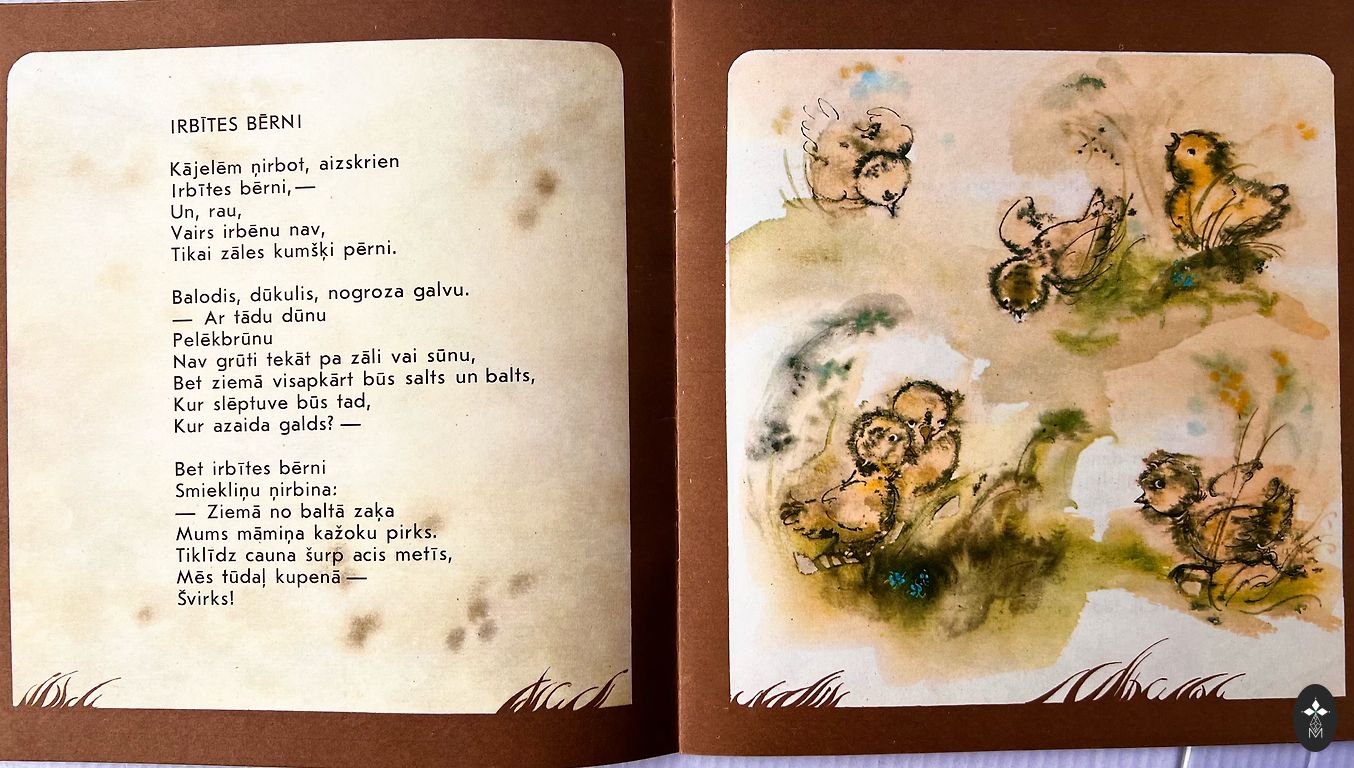 IRBĪTES BĒRNI
Kājelēm ņirbot, aizskrien
Irbītes bērni,—
Un, rau,
Vairs irbēnu nav,
Tikai zāles kumšķi pērni.
Balodis, dūkulis, nogroza galvu.
— Ar tādu dūnu
Pelēkbrūnu
Nav grūti tekāt pa zāli vai sūnu,
Bet ziemā visapkārt būs salts un balts,
Kur slēptuve būs tad,
Kur azaida galds? —
Bet irbītes bērni
Smiekliņu ņirbina:
— Ziemā no baltā zaķa
Mums māmiņa kažoku pirks.
Tiklīdz cauna šurp acis metīs,
Mēs tūdaļ kupenā —
Švirks!
M